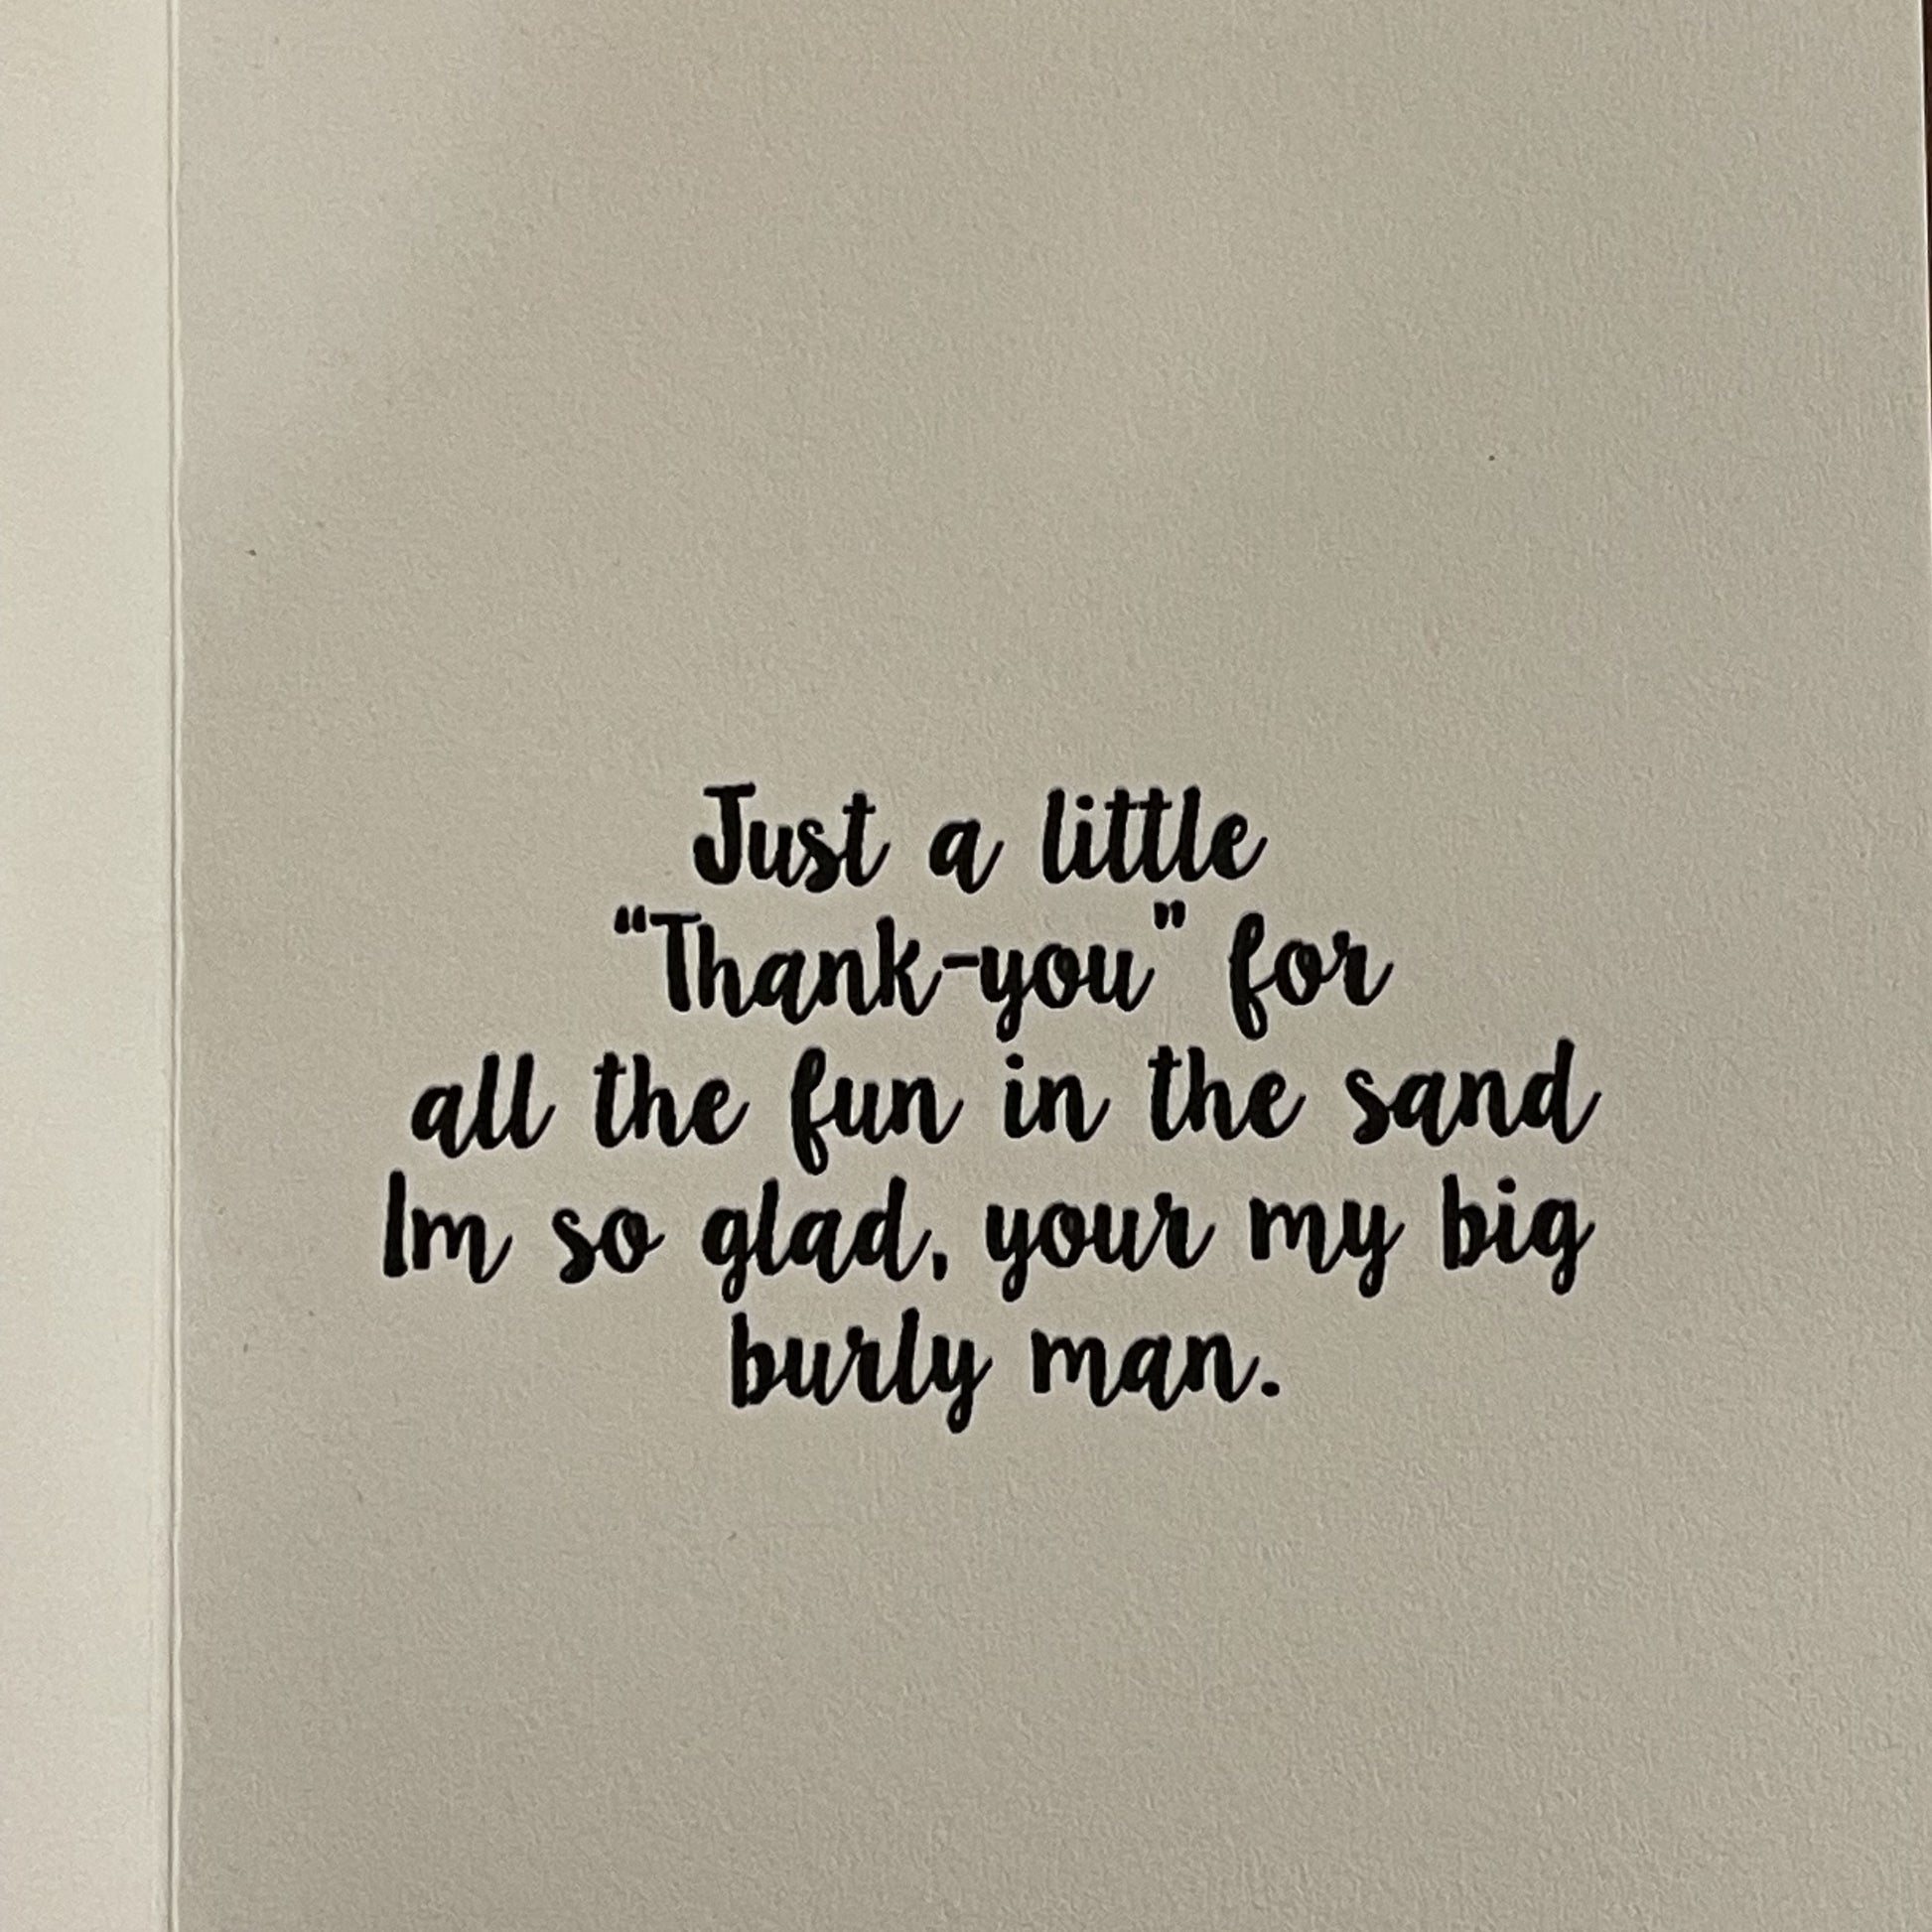 Just a little
“Thank-you” for
all the fun in the sand
Im so glad, your my big
burly man.